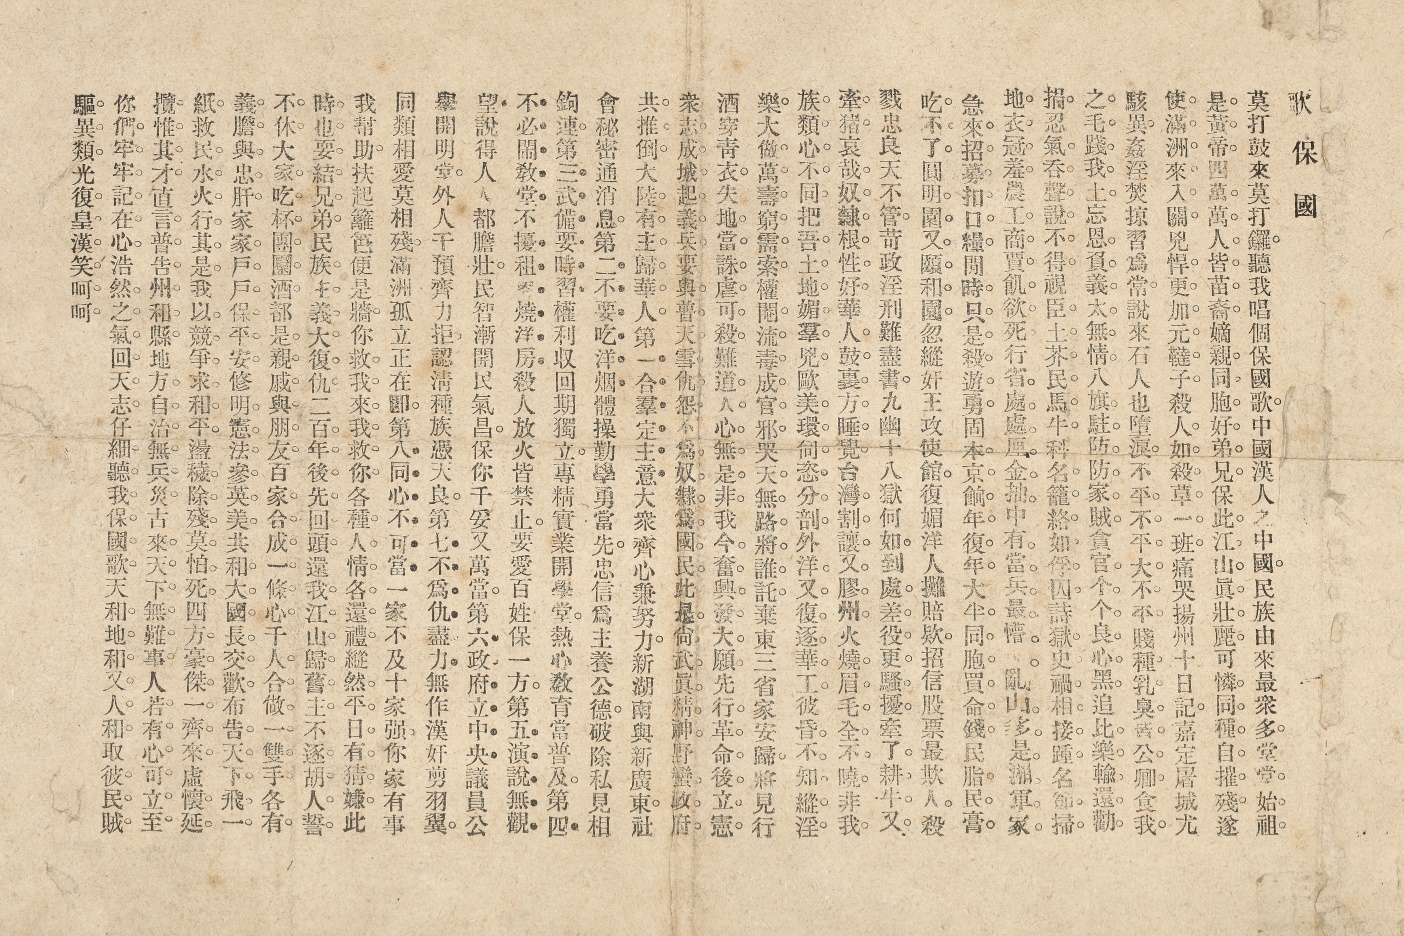 歌保國
莫打鼓來莫打鑼聽我唱個保國歌中國漢人之中國民族由來最衆多堂堂始祖
是黃帝四萬萬人皆苗裔嫡親同胞好弟兄保此江山眞壯麗可憐同種自摧殘遂
使滿洲來入關兇悍更加元韃子殺人如殺草一班痛哭揚州十日記嘉定屠城尤
駭異姦淫焚掠習爲常說來石人也墮淚不平不平大不平賤種乳臭公卿食我
之毛踐我土忘恩負義太無情八旗駐防防家賊貪官个个良心黑追比樂輸還勸
捐忍氣吞聲說不得視臣土芥民馬牛科名籠絡如俘囚詩獄史禍相接踵名節掃
地衣冠羞農工商賈飢欲死行省處處厘金抽中有當兵最懵亂山多是湘軍家
急來招募扣口糧閒時只是殺遊勇固本京餉年復年大半同胞買命錢民脂民膏
吃不了圓明園又頤和園忽縱奸王攻使館復媚洋人攤賠欵招信股票最欺人殺
戮忠良天不管苛政淫刑難盡書九幽十八獄何如到處差役更騷擾牽了耕牛又
牽猪哀哉奴隸根性好華人鼓裏方睡覺台灣割讓又膠州火燒眉毛全不曉非我
族類心不同把吾土地媚羣兇歐美環伺恣分剖外洋又復逐華工彼昏不知縱淫
樂大做萬壽窮需索權閹流毒成官邪哭天無路將誰託棄東三省家安歸將見行
酒穿青衣失地當誅虐可殺難道人心無是非我今奮興發大願先行革命後立憲
衆志成城起義兵要與普天雪仇怨不爲奴隸爲國民此是尙武眞精神野蠻政府
共推倒大陸有主歸華人第一合羣定主意大衆齊心秉努力新湖南與新廣東社
會秘密通消息第二不要吃洋烟體操勤學勇當先忠信爲主養公德破除私見相
鉤連第三武備要時習權利収回期獨立專精實業開學堂熱心敎育當普及第四
不必鬧敎堂不擾租界燒洋房殺人放火皆禁止要愛百姓保一方第五演說無觀
望說得人人都膽壯民智漸開民氣昌保你千妥又萬當第六政府立中央議員公
擧開明堂外人干預齊力拒認淸種族憑天良第七不爲仇盡力無作漢奸剪羽翼
同類相愛莫相殘滿洲孤立正在卽第八同心不可當一家不及十家强你家有事
我幫助扶起籬笆便是牆你救我來我救你各種人情各還禮縱然平日有猜嫌此
時也要結兄弟民族主義大復仇二百年後先回頭還我江山歸舊主不逐胡人誓
不休大家吃杯團圞酒都是親戚與朋友百家合成一條心千人合做一雙手各有
義膽與忠肝家家戶戶保平安修明憲法參英美共和大國長交歡布吿天下飛一
紙救民水火行其是我以競爭求和平盪穢除殘莫怕死四方豪傑一齊來虛懷延
攬惟其才直言普吿州和縣地方自治無兵災古來天下無難事人若有心可立至
你們牢牢記在心浩然之氣回天志仔細聽我保國歌天和地和又人和取彼民賊
驅異類光復皇漢笑呵呵